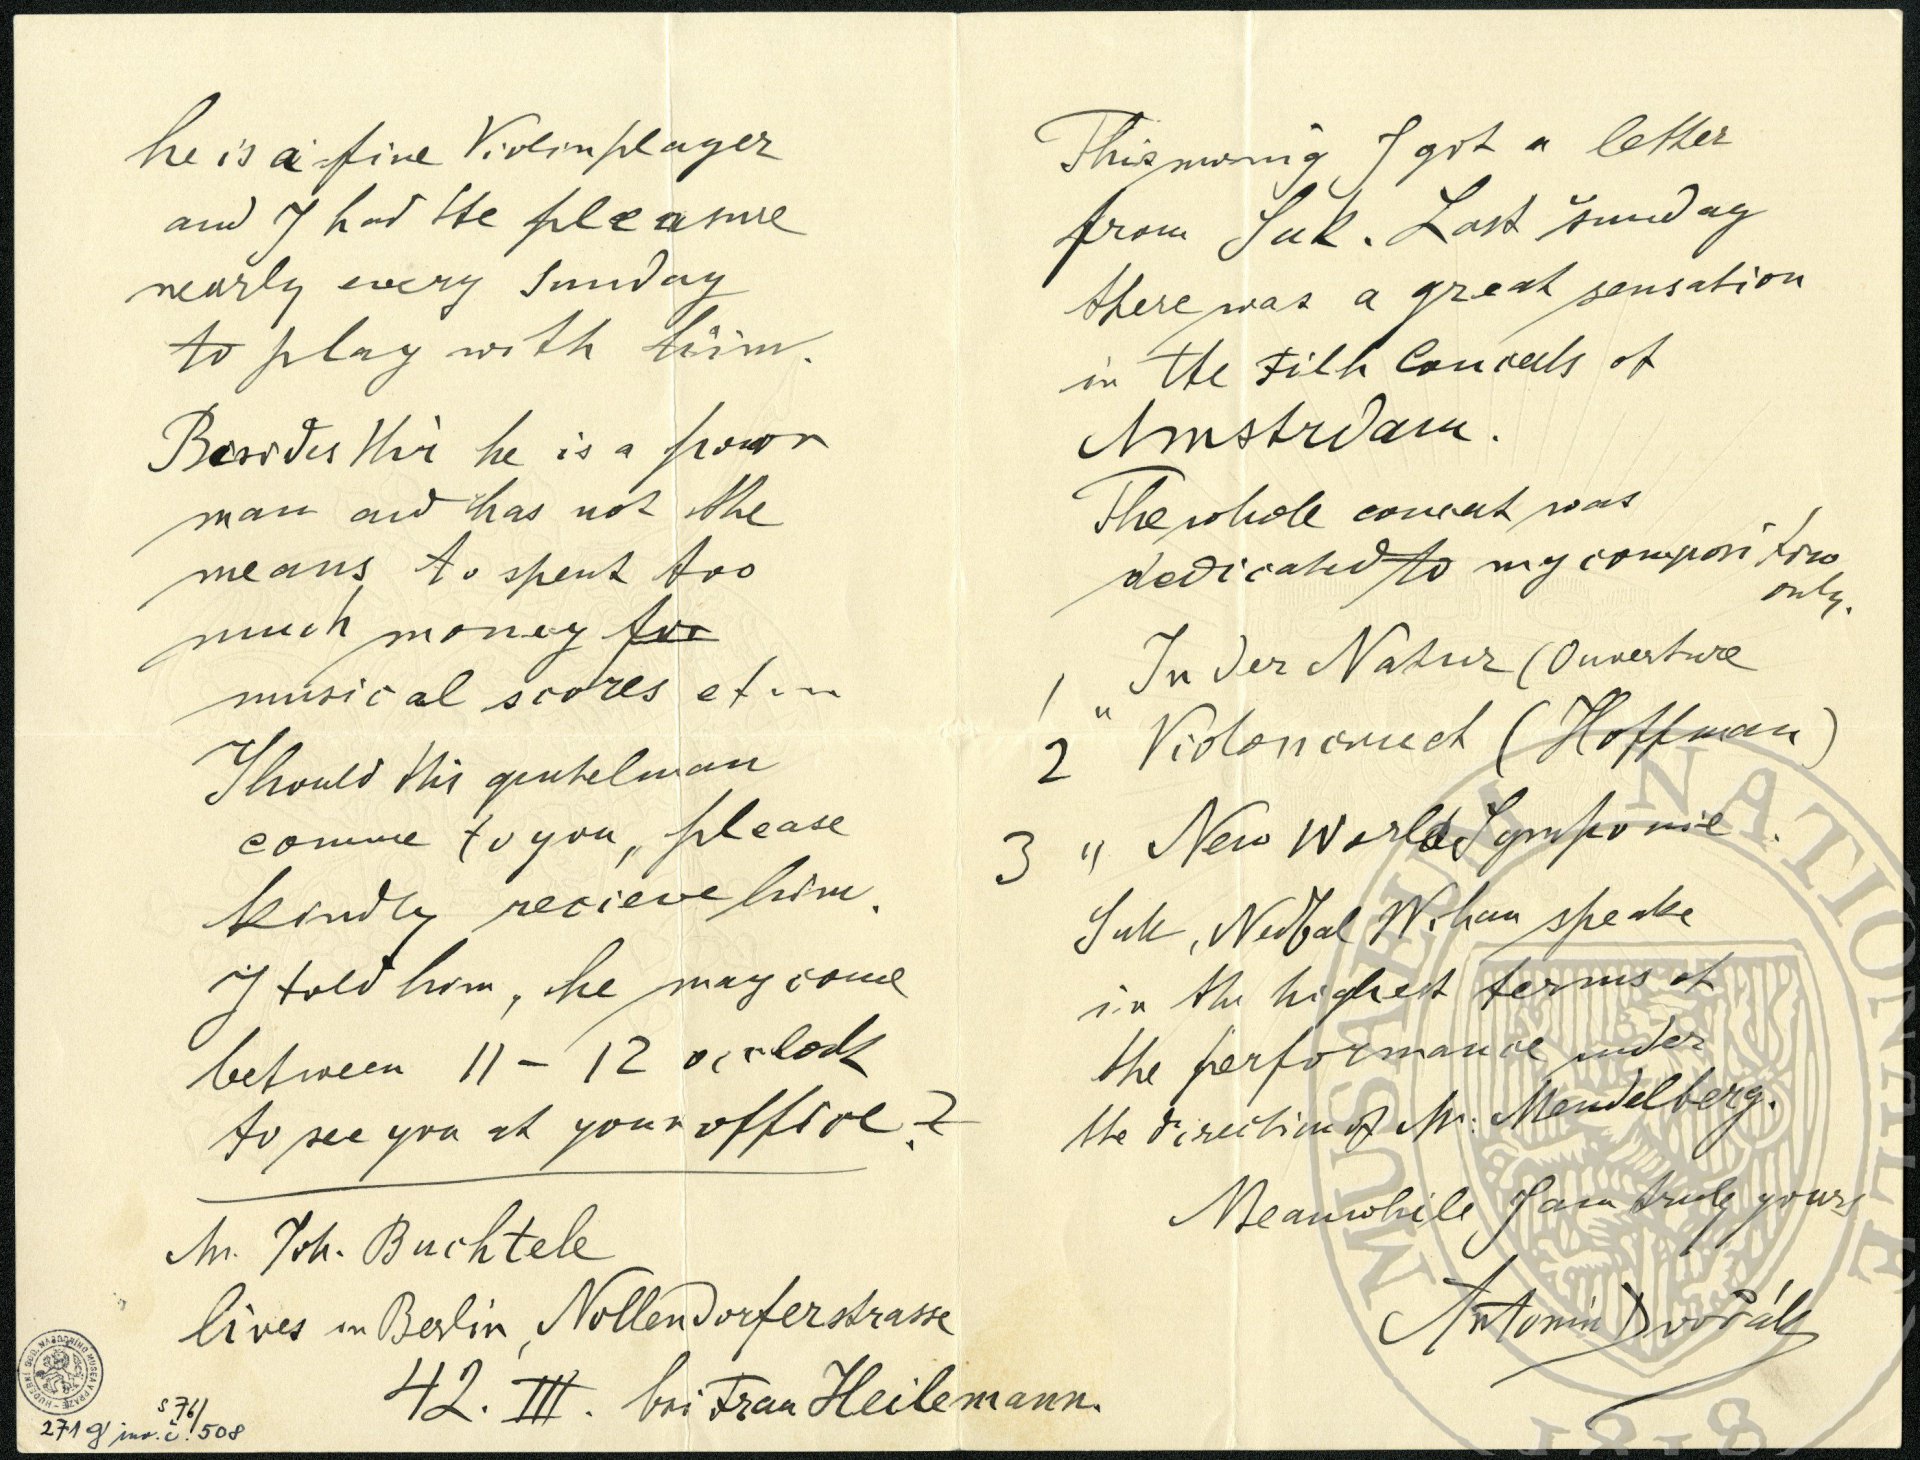 he is a fine Violinplayer
and I had the pleasure
nearly every Sunday
to play with him.
Besides this he is a poor
man and has not the
means to spent too
much money for
musical scores et
Should this gentelman
comme to you, please
kindly recieve him.
I told him, he may come
between 11 – 12 occlock
to see you at your office?
Mr. Joh. Buchtele
lives in Berlin, Nollendorferstrasse
42. III. bei Frau Heilemann.
S 76/
271 g inv. č. 508
This morning I got a letter
from Suk. Last Sunday
there was a great sensation
in the Filh Concerts of
Amstrdam.
The whole concert was
dedicated to my composition
only.
1 In der Natur (Ouverture
2 " Violonconcert (Hoffman)
3 " New World Symponie.
Suk, Nedbal Wihan speake
in the highest terms of
the performance under
the direction of Mr. Mendelberg.
Meanwhile I am truly yours
Antonín Dvořák
MUSAEUM NATIONALE
1818